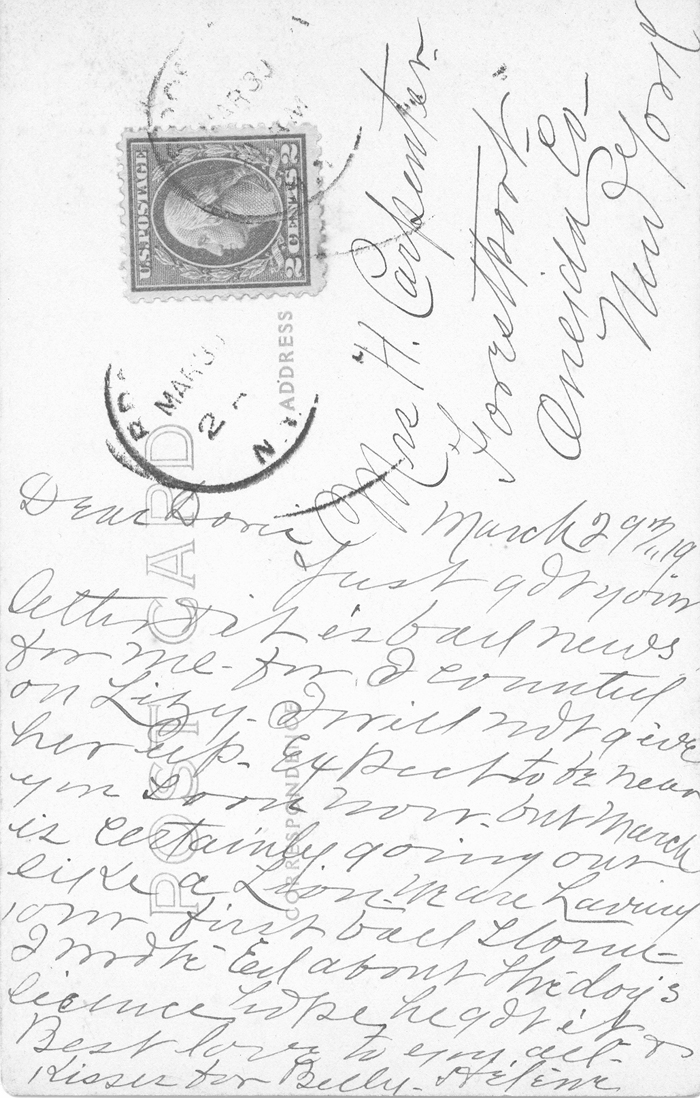 U.S. POSTAGE
2 CENTS 2
MAR 30
MAR 30
2
N.Y.
POST CARD
ADDRESS
CORRESPONDENCE
Mrs H. Carpenter.
Forestport
Oneida Co
New York
March 29th, 19
Dear Doris
Just got your
letter & it is bad news
for me - for I counted
on Lizy. I will not give
her up. Expect to be near
you soon now. but March
is certainly going out
like a Lion. Were having
our first bad storm
I wrote Ed about the dog's
licence hope he got it &
Best love to you all-
Kisses for Billy - Helene